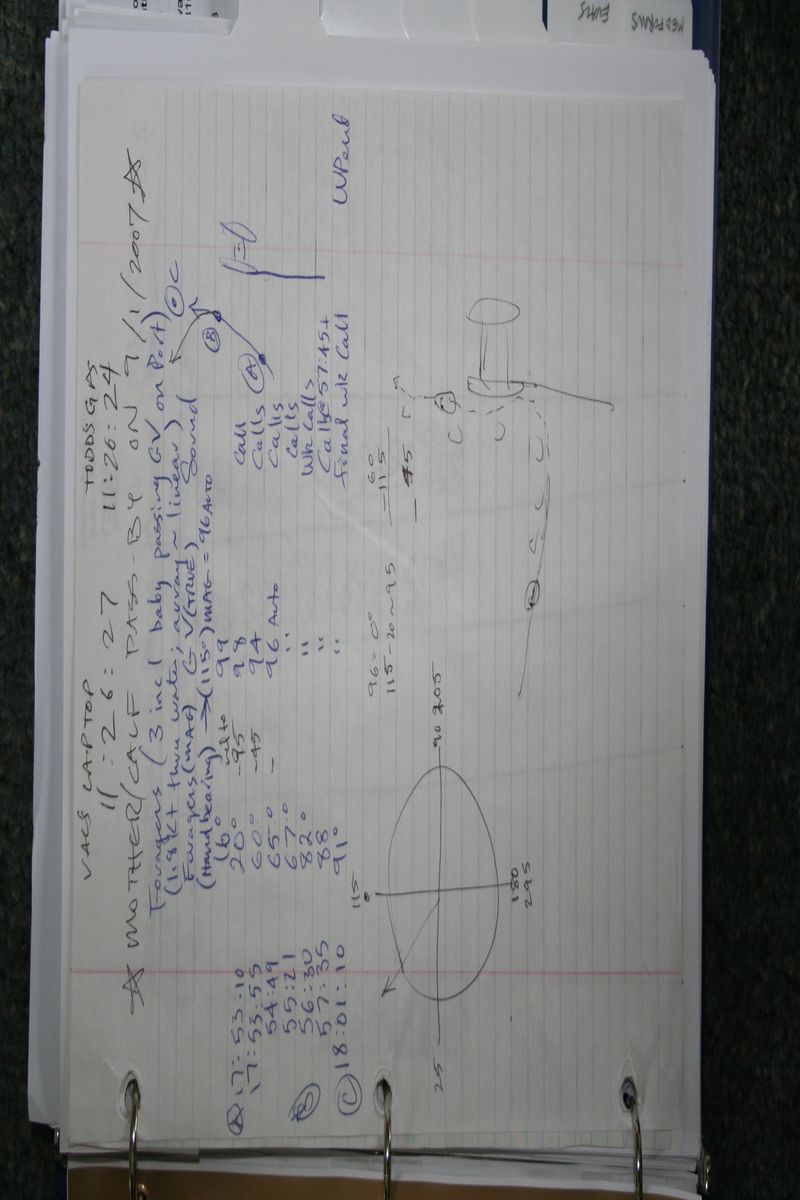 VAL'S LAPTOP TODDS GPS
11:26:27 11:26:24
☆ MOTHER/CALF PASS-BY ON 9/1/2007 ☆
Foragers (3 incl baby passing GV on Port)
(1.8kt thru water; array ~ linear)
Foragers (MAG) GV (TRUE) Sound
(Hand bearing) → (115°) MAG = 96 Auto
Ⓐ 17:53:10 16° rel to 99 Call
17:53:55 20° -95 98 Calls
54:49 60° -45 94 Calls
55:21 65° - 96 Auto Calls
Ⓑ 56:30 67° " Wk Calls
57:35 82° " Calls @ 57:45+
88
Ⓒ 18:01:10 91° " final wk Call WP end
Ⓐ
Ⓑ
Ⓒ C
96 = 0°
115-20 ~ 95
60
-115
-45
115
0
25
90 205
180
295
C
MED FORMS
EVALS